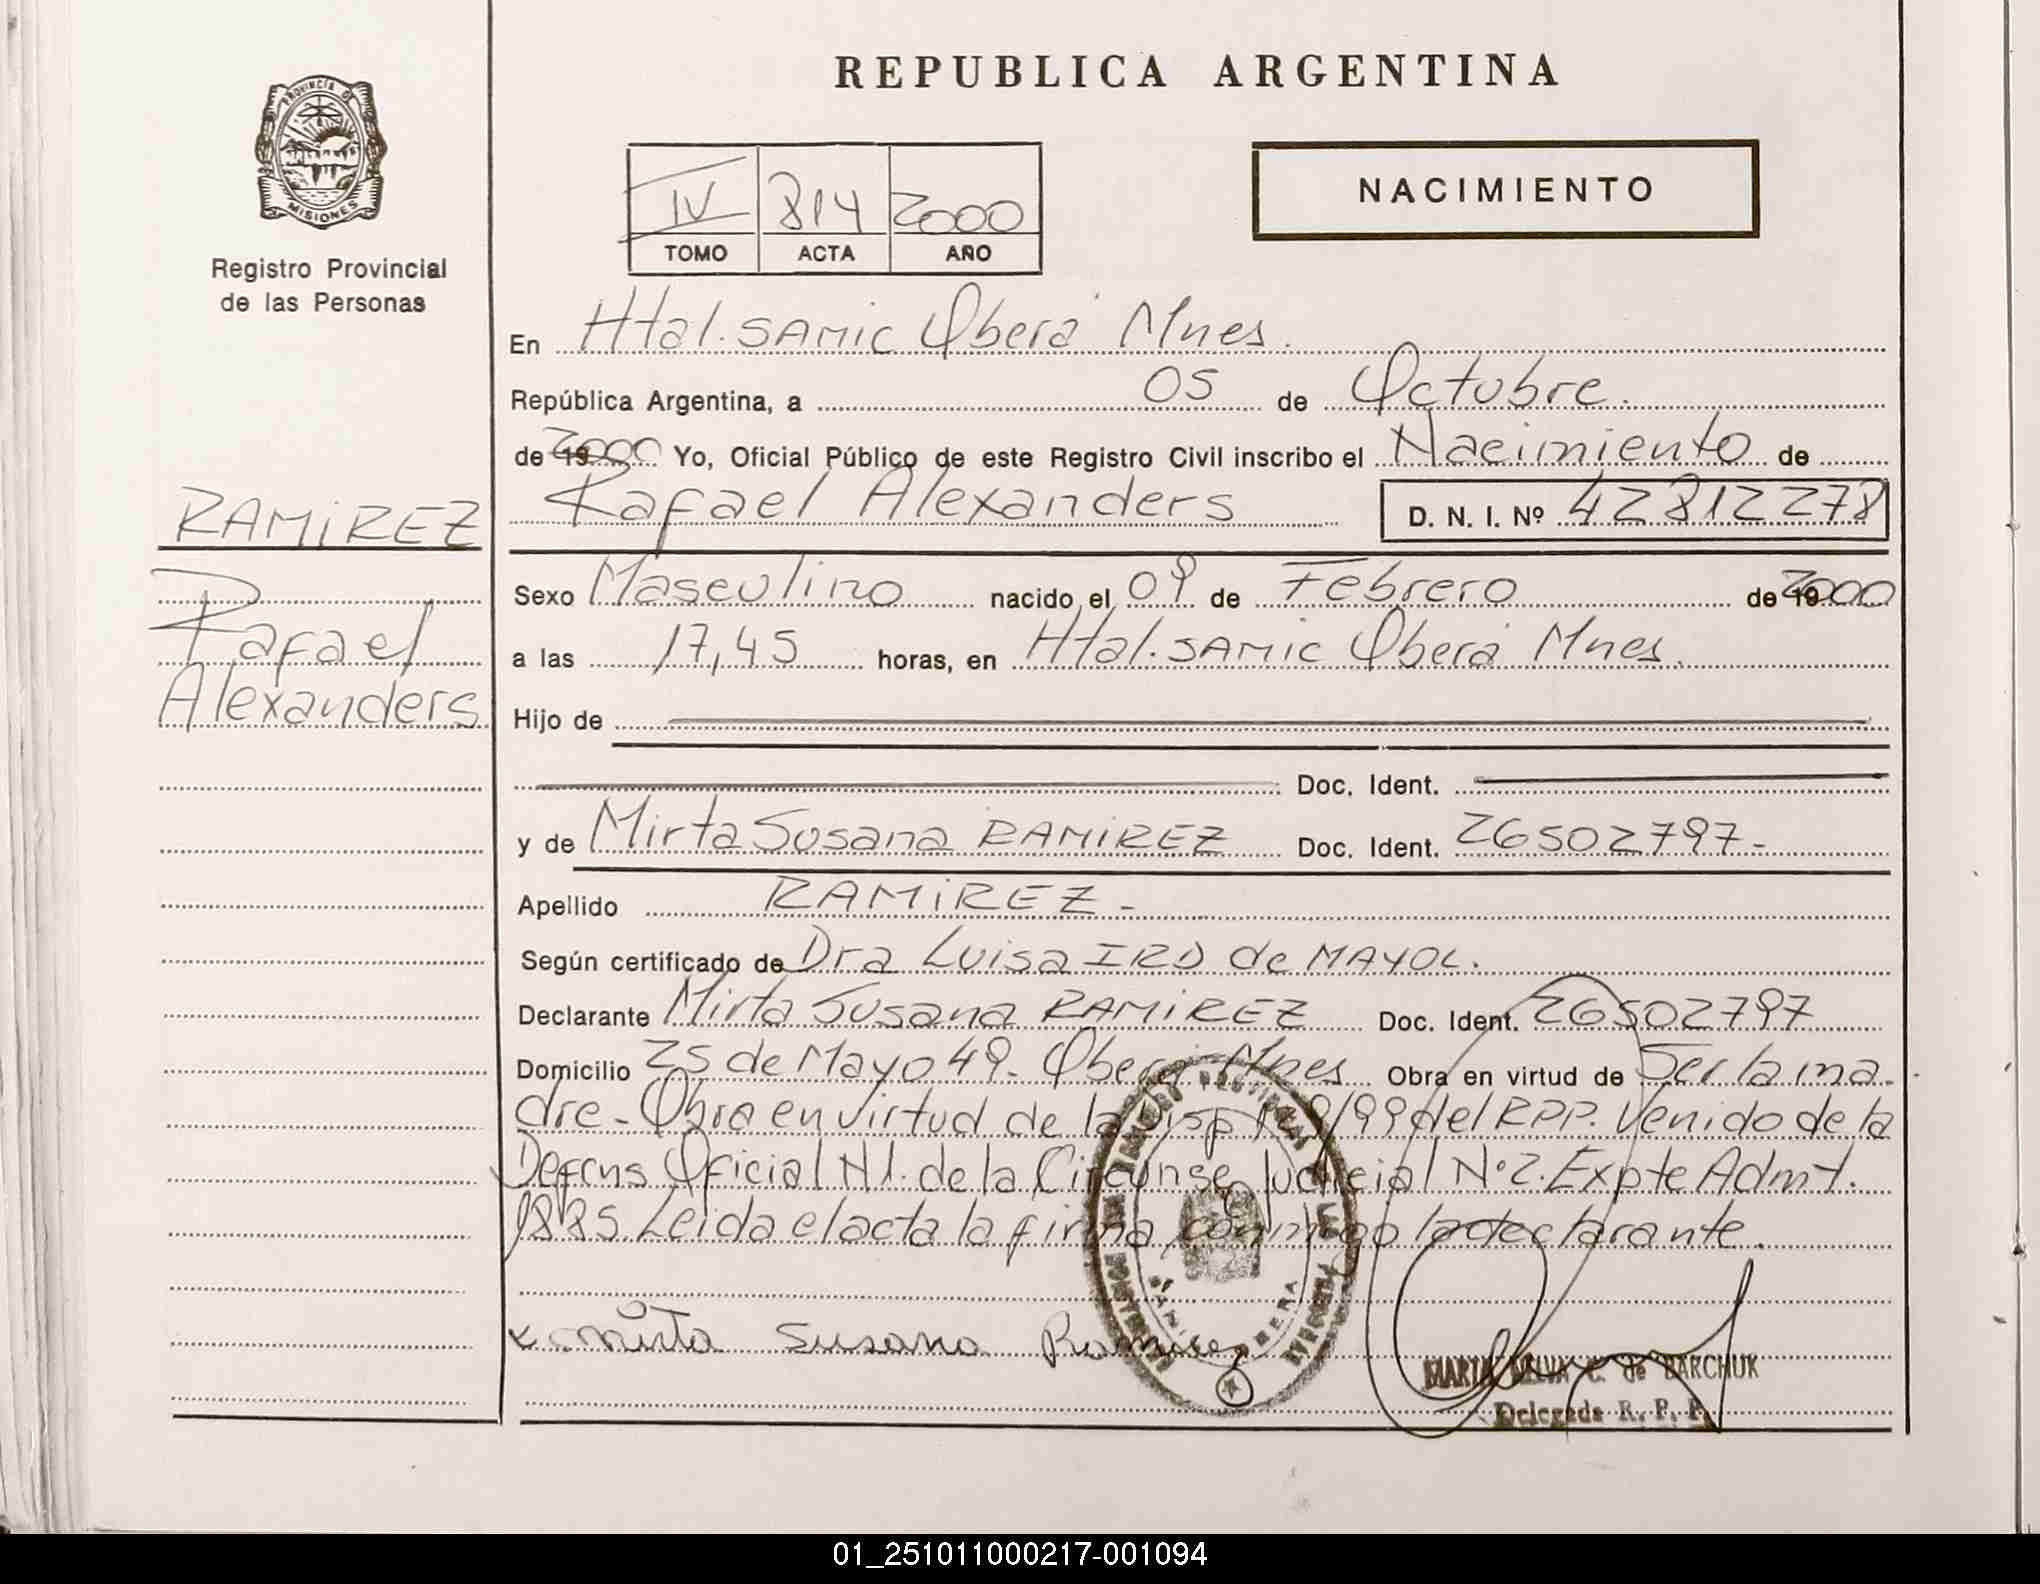 REPUBLICA ARGENTINA
PROVINCIA DE
MISIONES
Registro Provincial
de las Personas
IV 814 2000
TOMO ACTA AÑO
NACIMIENTO
En Htal. SAMIC Oberá Mnes.
República Argentina, a 05 de Octubre.
de 2000 Yo, Oficial Público de este Registro Civil inscribo el Nacimiento de
Rafael Alexanders D. N. I. Nº 42812278
RAMIREZ
Rafael
Alexanders
Sexo Masculino nacido el 09 de Febrero de 2000
a las 17,45 horas, en Htal. SAMIC Oberá Mnes.
Hijo de
Doc. Ident.
y de Mirta Susana RAMIREZ Doc. Ident. 26502797-
Apellido RAMIREZ-
Según certificado de Dra Luisa IRD de MAYOL.
Declarante Mirta Susana RAMIREZ Doc. Ident. 26502797
Domicilio 25 de Mayo 49- Oberá Mnes Obra en virtud de Ser la ma-
dre- Obra en virtud de la Disp 9/99 del RPP. Venido de la
Defens Oficial N1. de la Circunsc Judicial Nº2. Expte Admt.
1885. Leida el acta la firma conmigo la declarante.
x Mirta Susana Ramirez
MARIA ELVA C. de BARCHUK
Delegada R. P. P.
01_251011000217-001094